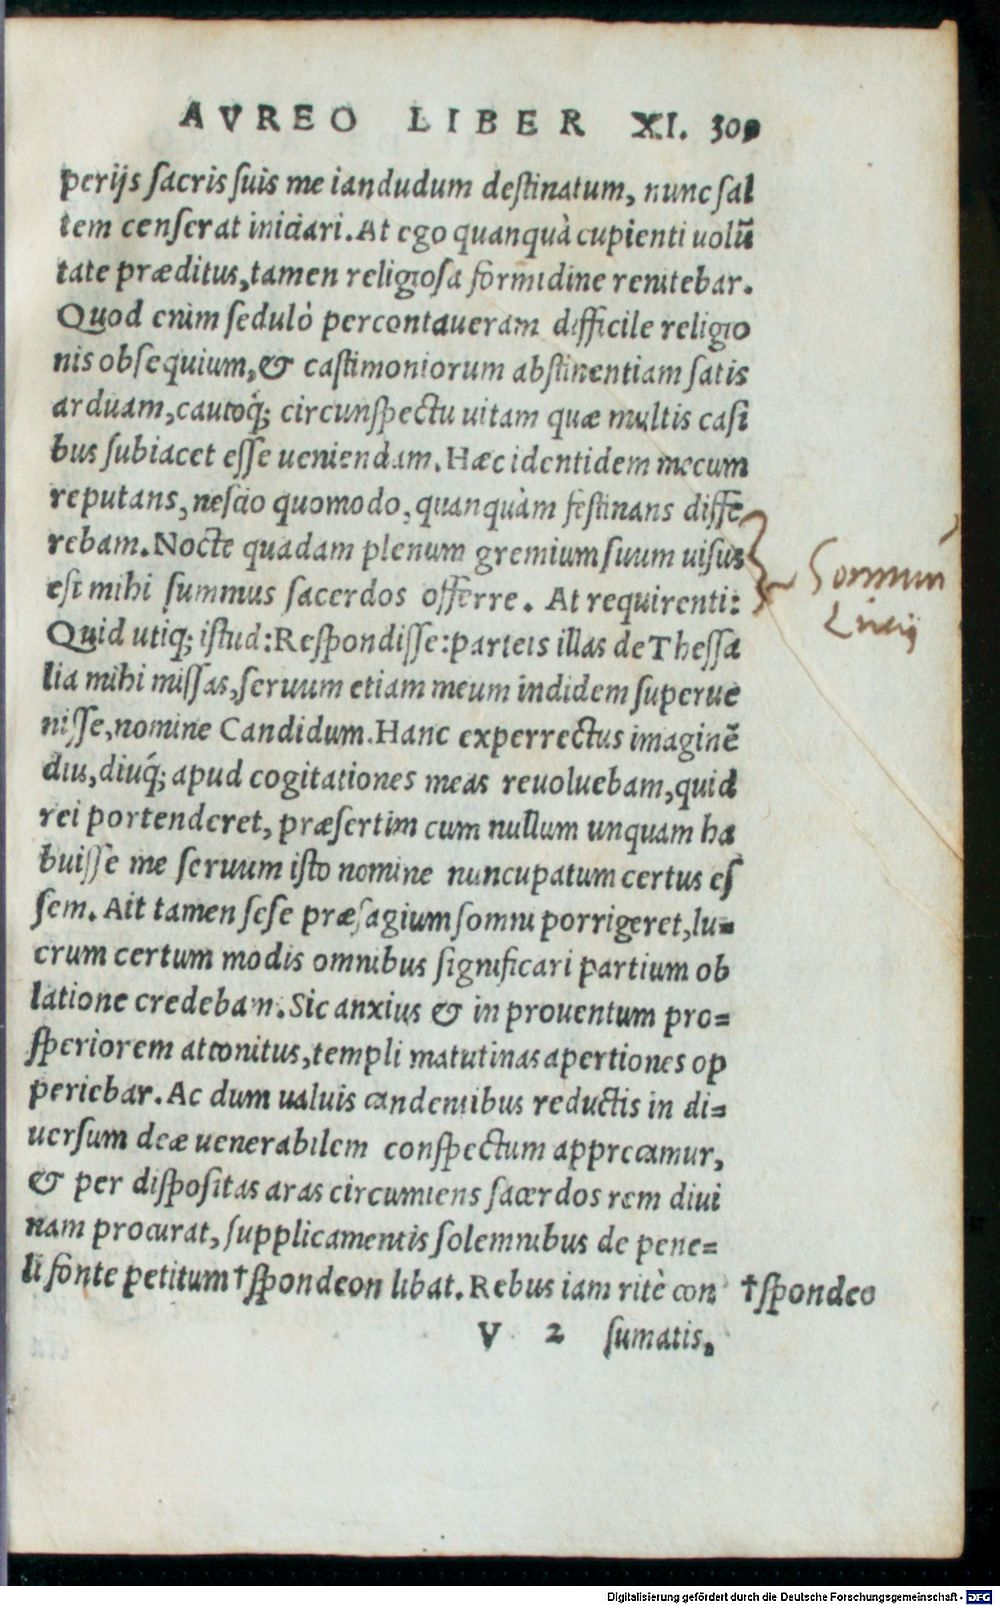 AVREO LIBER XI. 309
perijs sacris suis me iandudum destinatum, nunc sal
tem censerat iniciari. At ego quanquà cupienti uolū
tate præditus, tamen religiosa formidine renitebar.
Quod enim sedulò percontaueram difficile religio
nis obsequium, & castimoniorum abstinentiam satis
arduam, cautoq́; circunspectu uitam quæ multis casi
bus subiacet esse ueniendam. Hæc identidem mecum
reputans, nescio quomodo, quanquàm festinans diffe
rebam. Nocte quadam plenum gremium suum uisus
est mihi summus sacerdos offerre. At requirenti:
Quid utiq; istud: Respondisse: parteis illas de Thessa
lia mihi missas, seruum etiam meum indidem superue
nisse, nomine Candidum. Hanc experrectus imaginē
diu, diuq́; apud cogitationes meas reuoluebam, quid
rei portenderet, præsertim cum nullum unquam ha
buisse me seruum isto nomine nuncupatum certus es
sem. Ait tamen sese præsagium somni porrigeret, lu=
crum certum modis omnibus significari partium ob
latione credebam. Sic anxius & in prouentum pro=
speriorem attonitus, templi matutinas apertiones op
periebar. Ac dum ualuis candentibus reductis in di=
uersum deæ uenerabilem conspectum apprecamur,
& per dispositas aras circumiens sacerdos rem diui
nam procurat, supplicamentis solemnibus de pene=
li fonte petitum † spondeon libat. Rebus iam ritè con
† spondeo
V 2 sumatis,
Somnium
Lucij
Digitalisierung gefördert durch die Deutsche Forschungsgemeinschaft - DFG